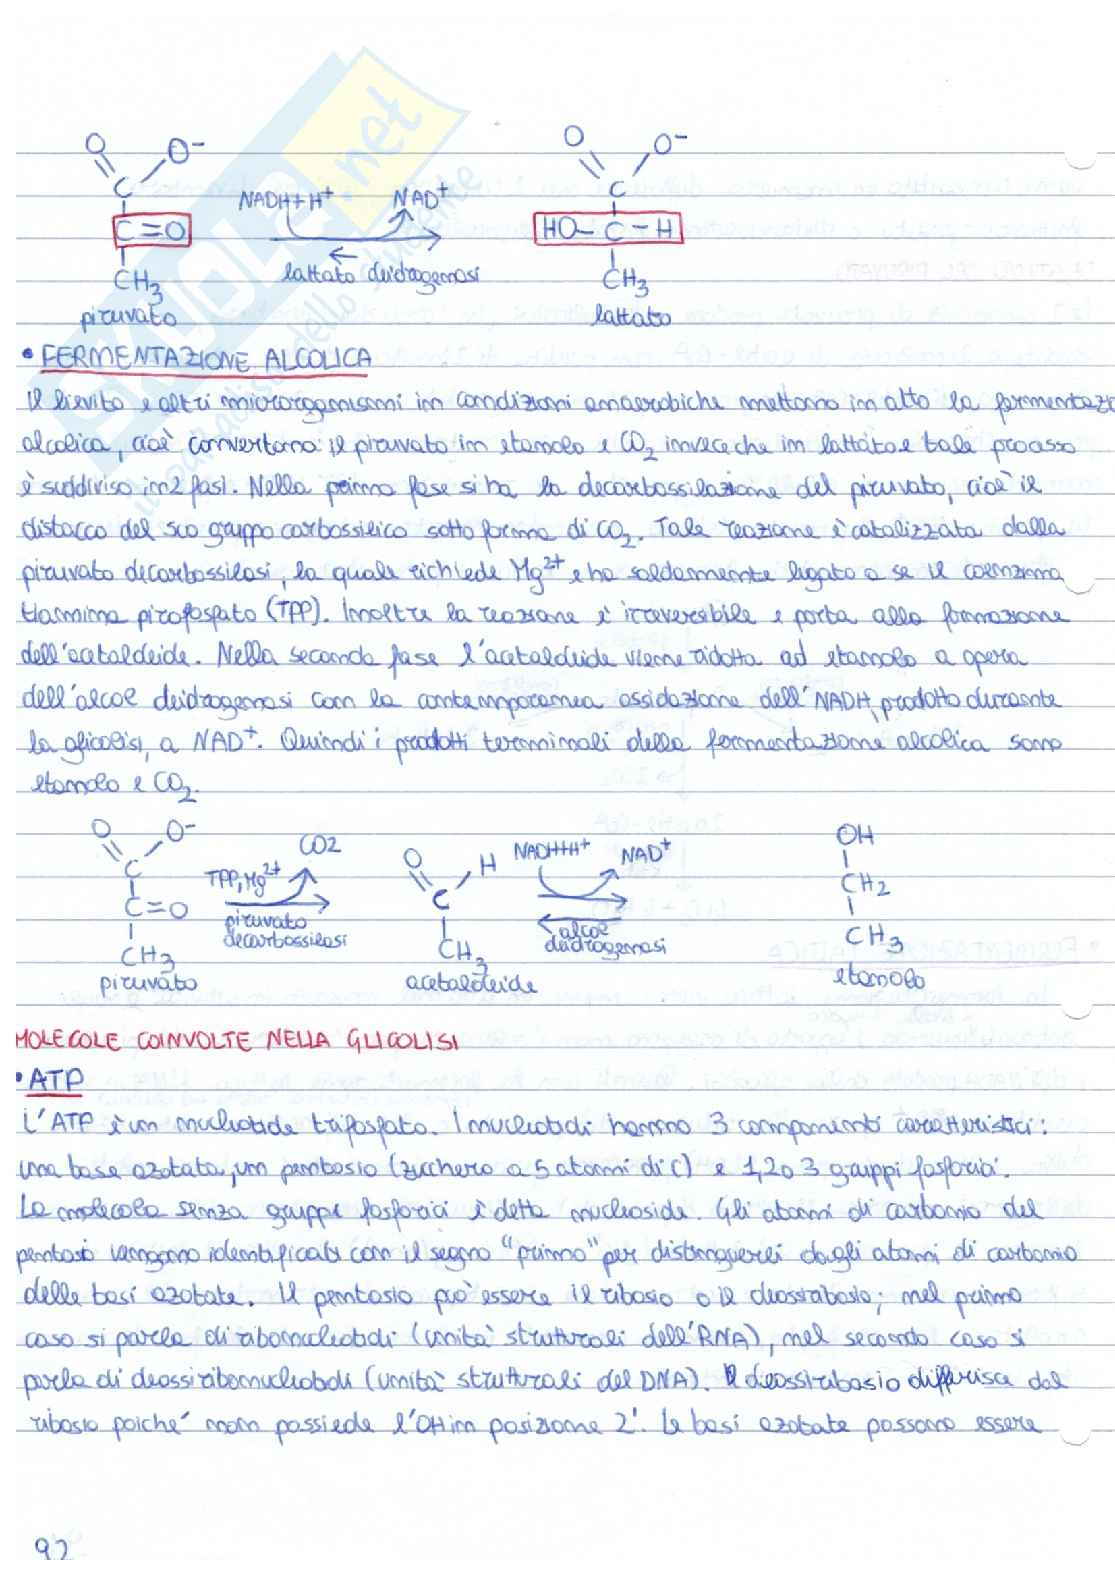 O O⁻ O O⁻
C NADH+H⁺ NAD⁺ C
C=O HO-C-H
CH3 lattato deidrogenasi CH3
piruvato lattato
• FERMENTAZIONE ALCOLICA
Il lievito e altri microrganismi in condizioni anaerobiche mettono in atto la fermentazio
alcolica, cioè convertono il piruvato in etanolo e CO₂ invece che in lattato e tale processo
è suddiviso in 2 fasi. Nella prima fase si ha la decarbossilazione del piruvato, cioè il
distacco del suo gruppo carbossilico sotto forma di CO₂. Tale reazione è catalizzata dalla
piruvato decarbossilasi, la quale richiede Mg²⁺ e ha saldamente legato a se il coenzima
tiamina pirofosfato (TPP). Inoltre la reazione è irreversibile e porta alla formazione
dell'acetaldeide. Nella seconda fase l'acetaldeide viene ridotta ad etanolo a opera
dell'alcol deidrogenasi con la contemporanea ossidazione dell'NADH, prodotto durante
la glicolisi, a NAD⁺. Quindi i prodotti terminali della fermentazione alcolica sono
etanolo e CO₂.
O O⁻ CO2 O H NADH+H⁺ NAD⁺ OH
C TPP, Mg²⁺ C CH2
C=O piruvato decarbossilasi alcol deidrogenasi
CH3 CH3 CH3
piruvato acetaldeide etanolo
MOLECOLE COINVOLTE NELLA GLICOLISI
• ATP
L'ATP è un nucleotide trifosfato. I nucleotidi hanno 3 componenti caratteristici:
una base azotata, un pentosio (zucchero a 5 atomi di C) e 1, 2 o 3 gruppi fosforici.
La molecola senza gruppi fosforici è detta nucleoside. Gli atomi di carbonio del
pentosio vengono identificati con il segno "primo" per distinguerli dagli atomi di carbonio
delle basi azotate. Il pentosio può essere il ribosio o il deossiribosio; nel primo
caso si parla di ribonucleotidi (unità strutturali dell'RNA), nel secondo caso si
parla di deossiribonucleotidi (unità strutturali del DNA). Il deossiribosio differisce dal
ribosio poiché non possiede l'OH in posizione 2'. Le basi azotate possono essere
92
SKUOLA.net
il paradiso dello studente